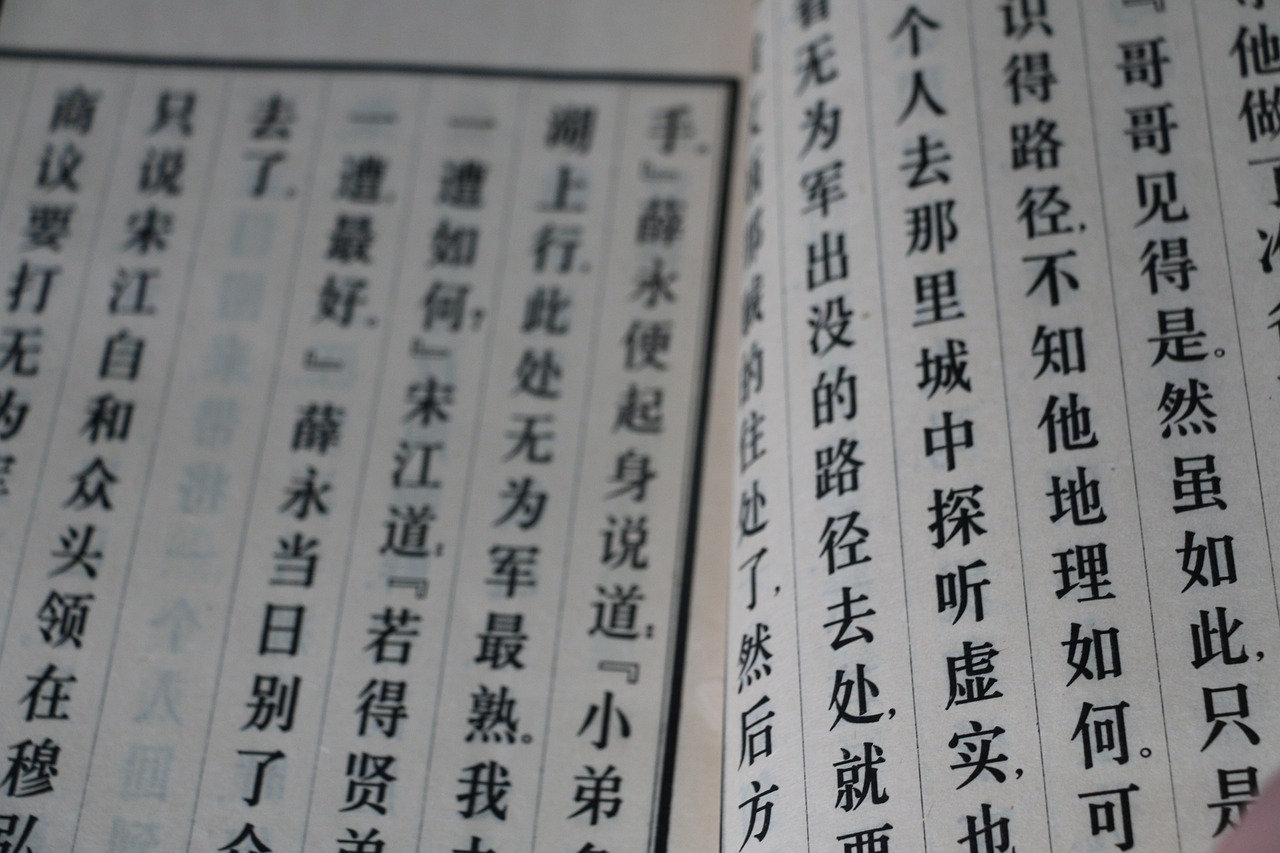 他做
『哥哥见得是。然虽如此,只是
识得路径,不知他地理如何。可
个人去那里城中探听虚实,也
看无为军出没的路径去处,就要
的住处了,然后方
手。』薛永便起身说道:『小弟
湖上行。此处无为军最熟。我
一遭如何?』宋江道:『若得贤弟
一遭,最好。』薛永当日别了
去了。
只说宋江自和众头领在穆弘
商议要打无为军